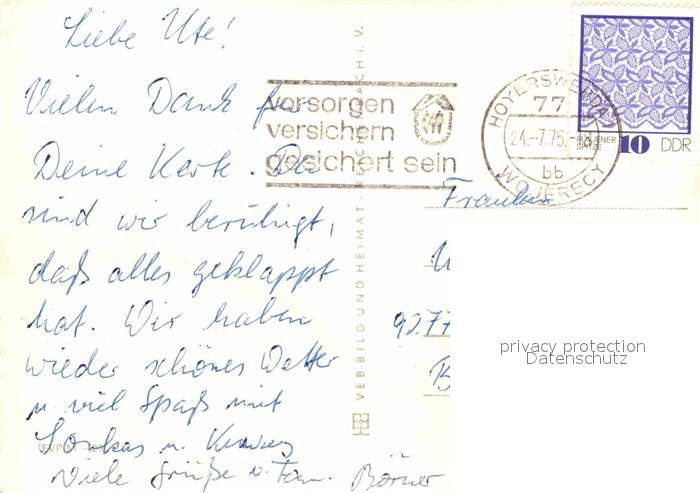 Liebe Ute!
Vielen Dank für
Deine Karte. Da
sind wir beruhigt,
daß alles geklappt
hat. Wir haben
wieder schönes Wetter
u. viel Spaß mit
u.
Viele Grüße v. Fam. Börner
vorsorgen
versichern
gesichert sein
HOYERSWERDA
77
24.-7.75
bb
WOJERECY
PLAUENER
SPITZE
10 DDR
Fräulein
U
9277
B
VEB BILD UND HEIMAT · REICHENBACH I. V.
privacy protection
Datenschutz